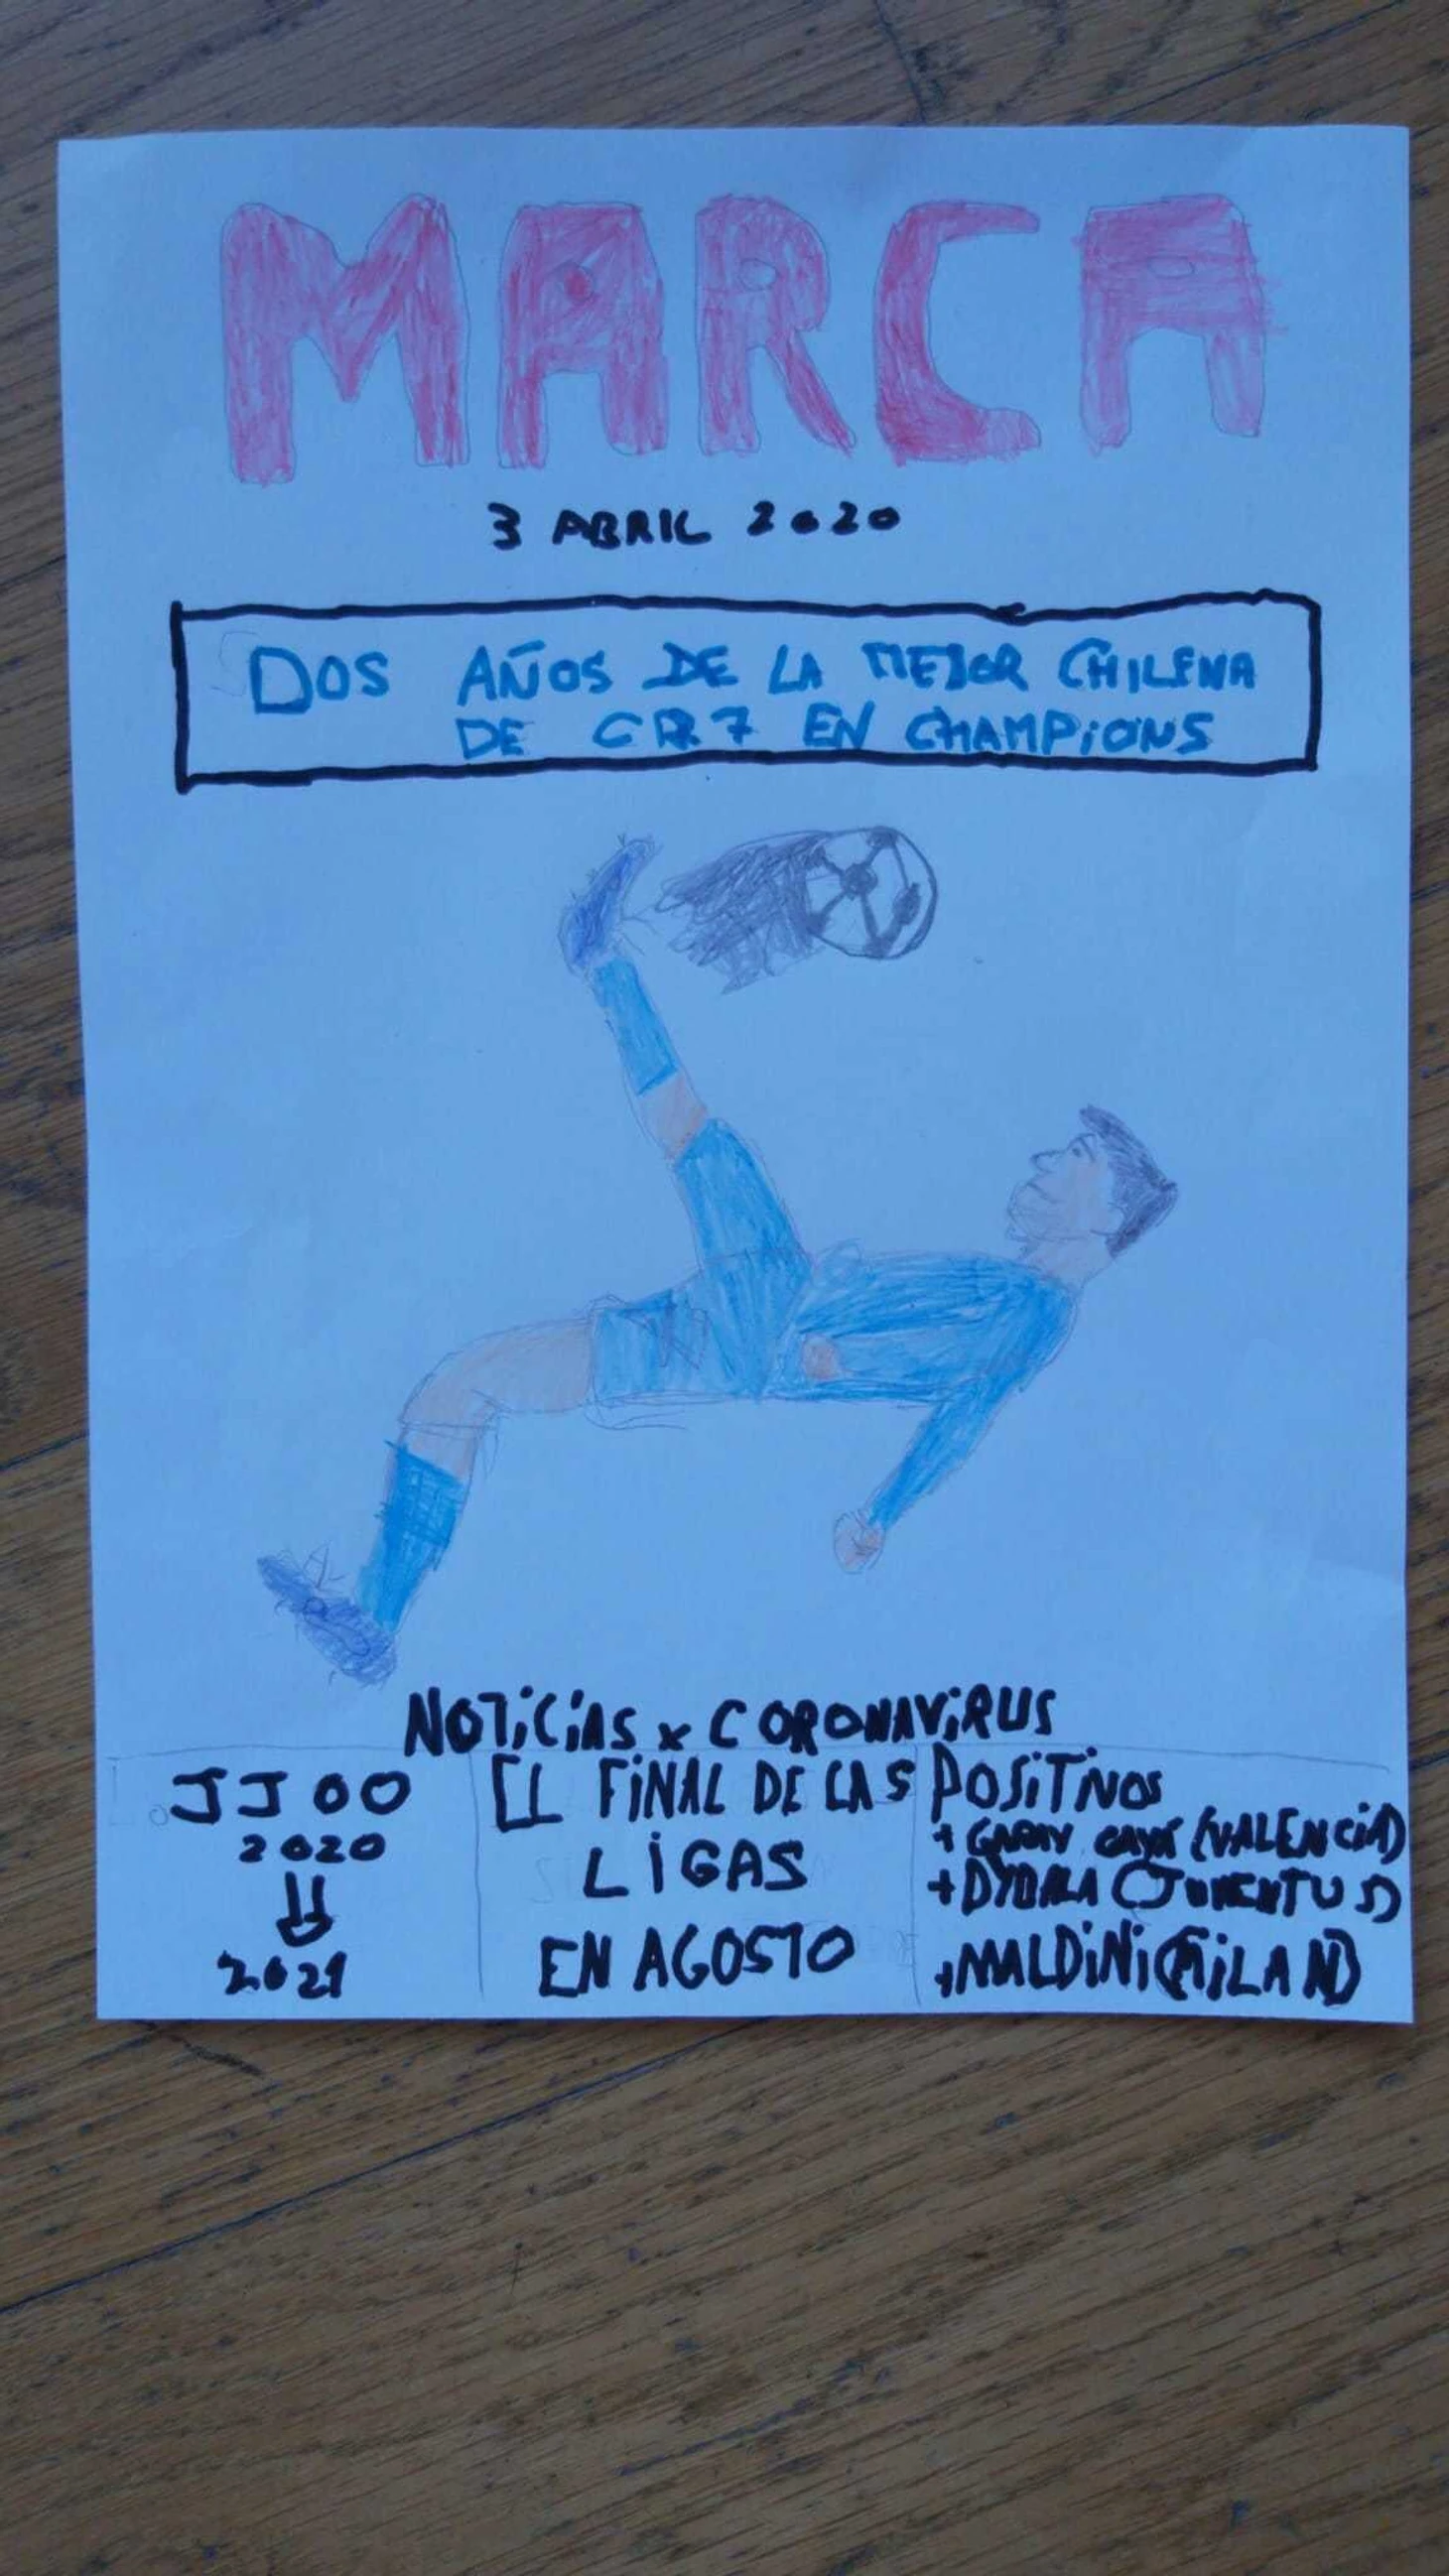 MARCA
3 ABRIL 2020
DOS AÑOS DE LA MEJOR CHILENA
DE CR7 EN CHAMPIONS
NOTICIAS x CORONAVIRUS
JJOO
2020
2021
EL FINAL DE LAS
LIGAS
EN AGOSTO
POSITIVOS
+ GARAY GAYÁ (VALENCIA)
+ DYBALA (JUVENTUS)
+ MALDINI (MILAN)